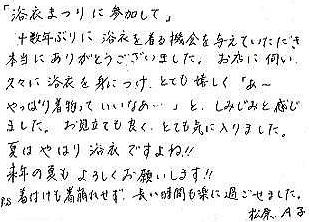 「浴衣まつりに参加して」
十数年ぶりに 浴衣を着る機会を与えていただき
本当にありがとうございました。 お店に伺い、
久々に 浴衣を身につけ、とても嬉しく「あ～
やっぱり着物っていいなあ…」と、しみじみと感じ
ました。 お見立ても良く、とても気に入りました。
夏は やはり 浴衣ですよね!!
来年の夏も よろしくお願いします!!
P.S 着付けも着崩れせず、長い時間も楽に過ごせました。
松原 A子